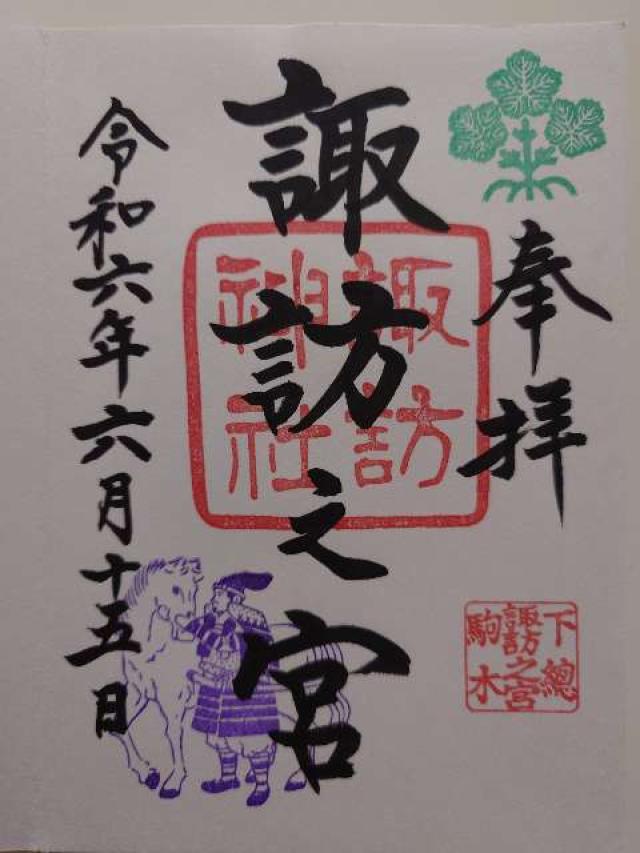 奉拝
諏訪之宮
諏訪
神社
令和六年六月十五日
下總
諏訪之宮
駒木